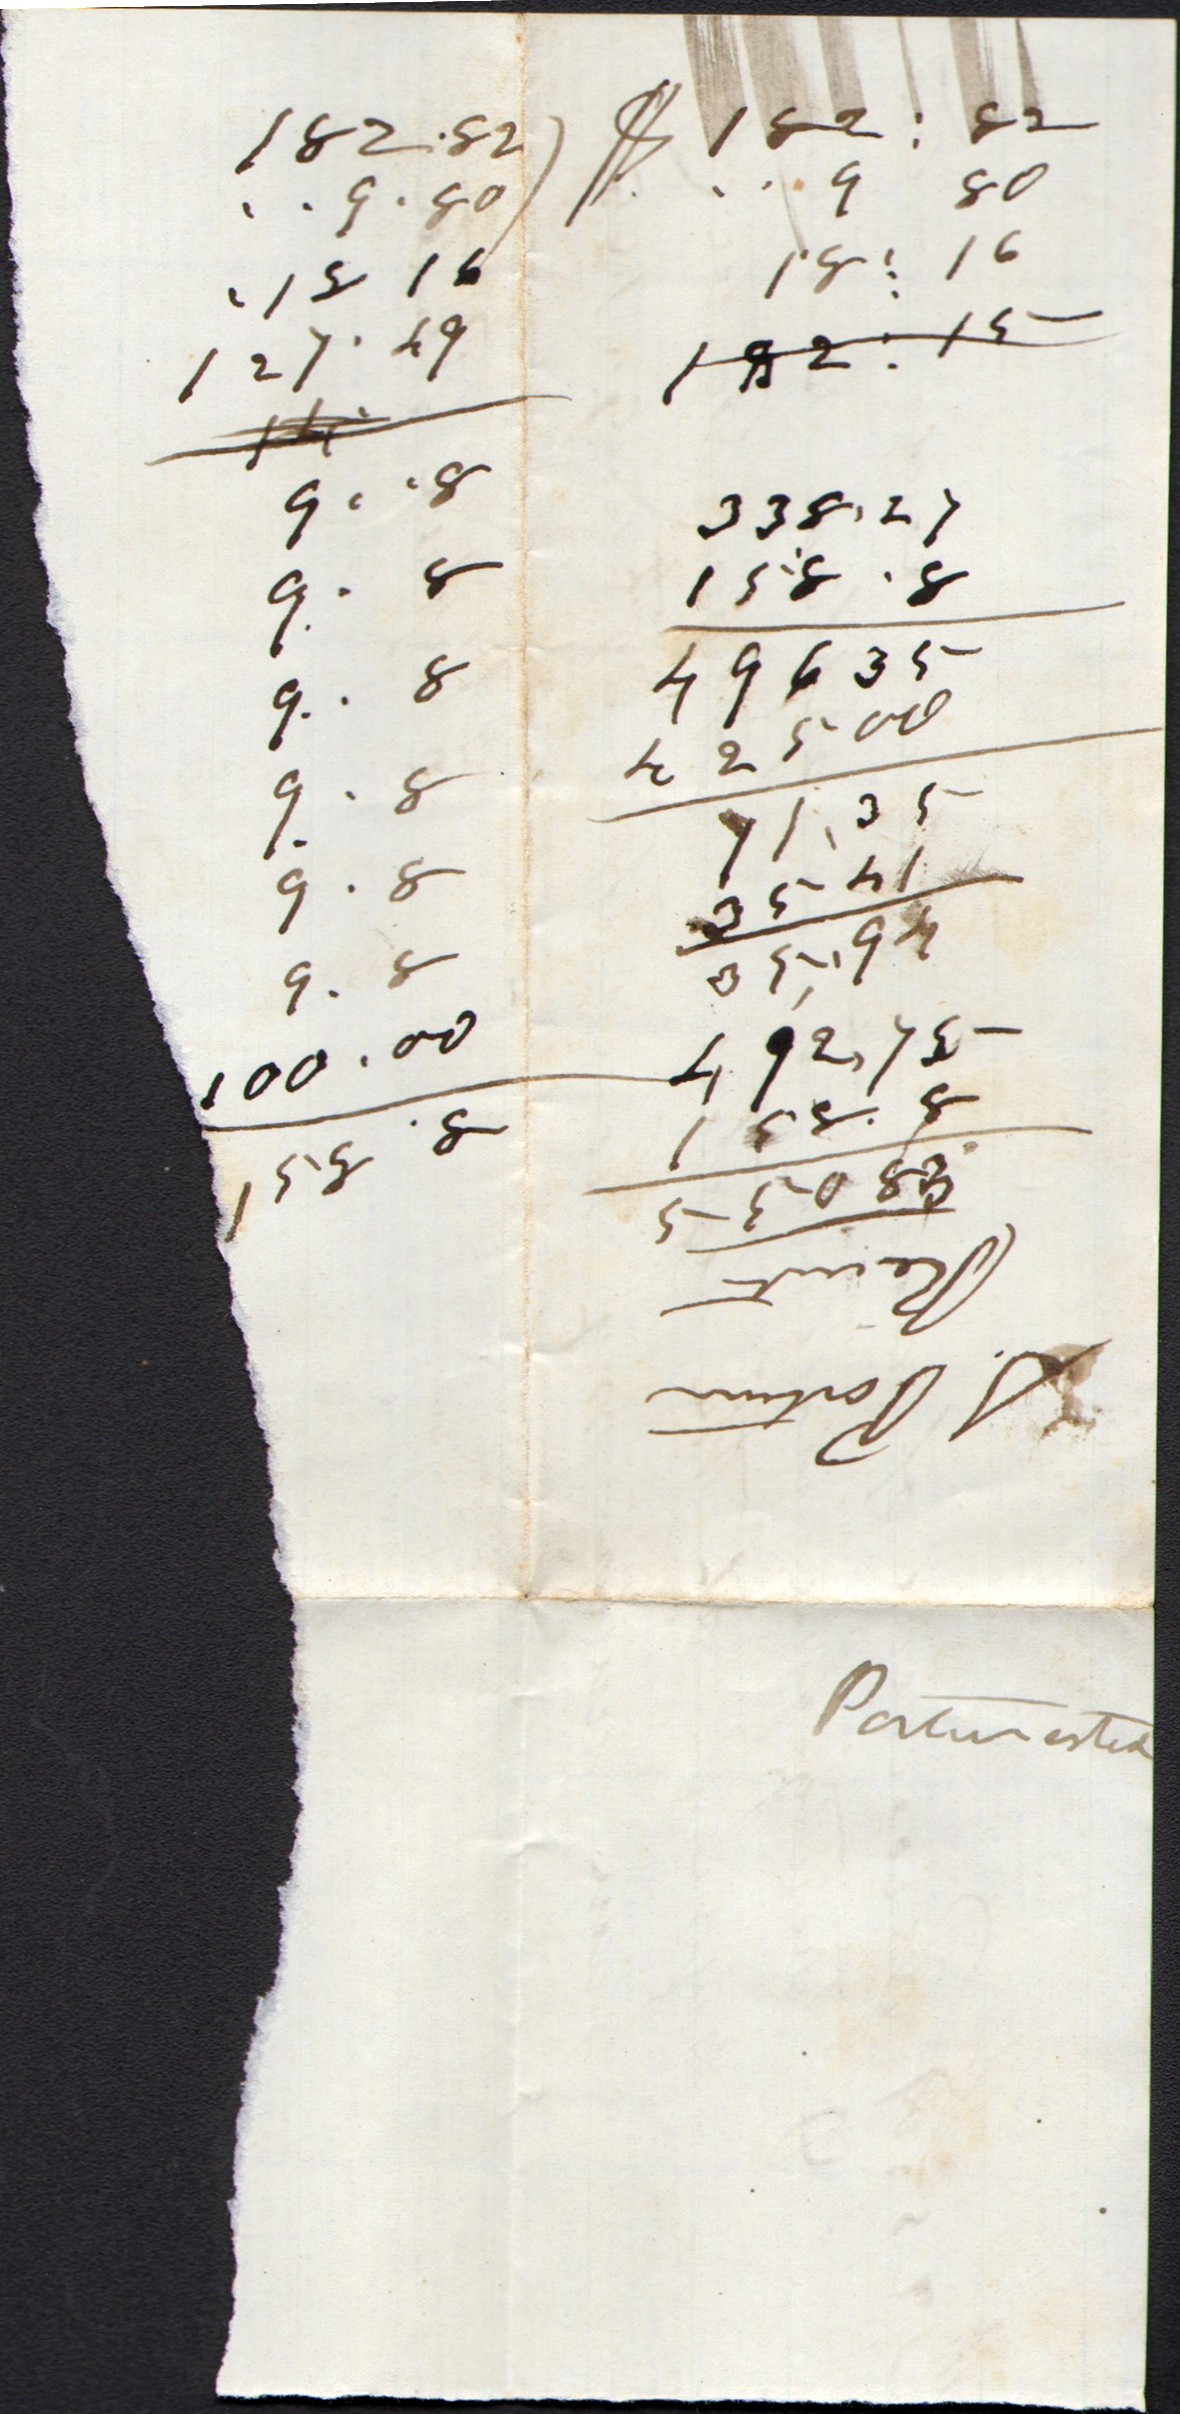 182.82
. . 9.80
.18 16
127.49
9. .8
9. 8
9. . 8
9. 8
9. 8
9. 8
100.00
158.8
$ 182: 82
. . . 9 80
18: 16
192: 15
338.27
158.8
49635
42500
71,35
35 41
35,94
492,75
158.8
S. Portum
Receipt
Portum estea